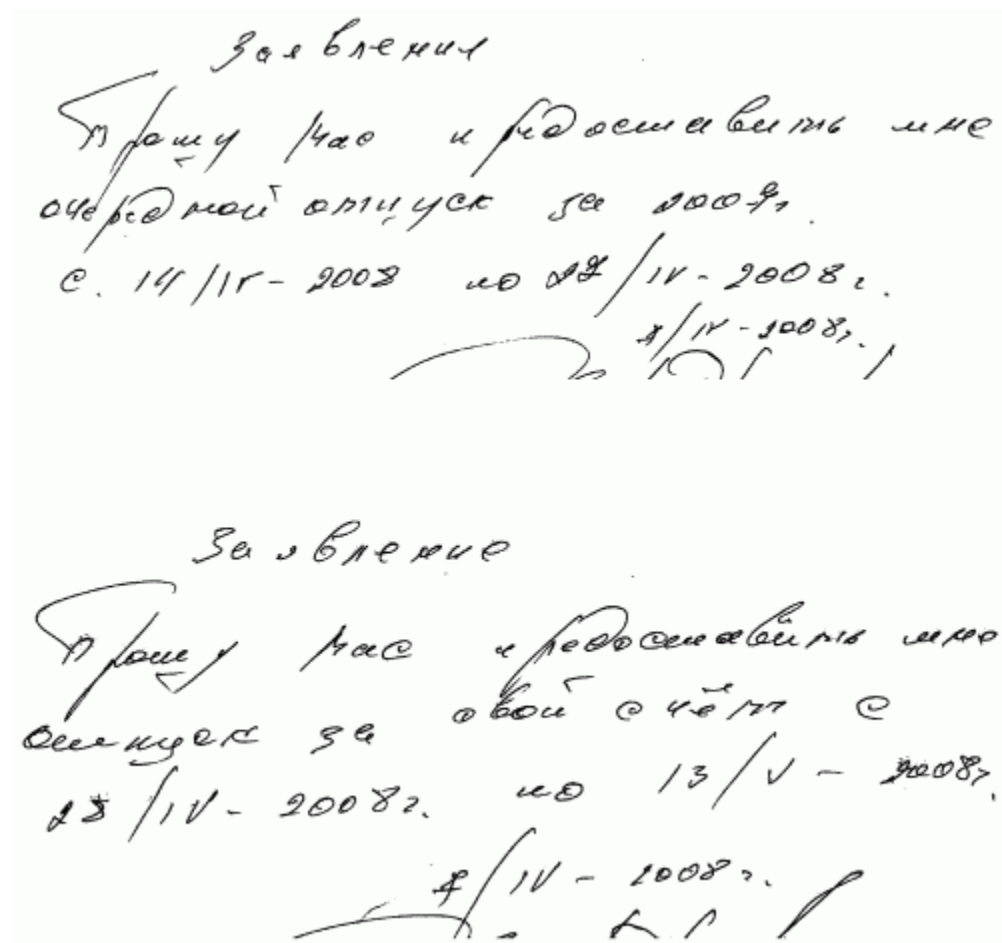 Заявления
Прошу Вас предоставить мне
очередной отпуск за 2007г.
с. 14/IV - 2008 по 27/IV - 2008г.
/IV - 2008г.
Заявление
Прошу Вас предоставить мне
отпуск за свой счёт с
28/IV - 2008г. по 13/V - 2008г.
/IV - 2008г.